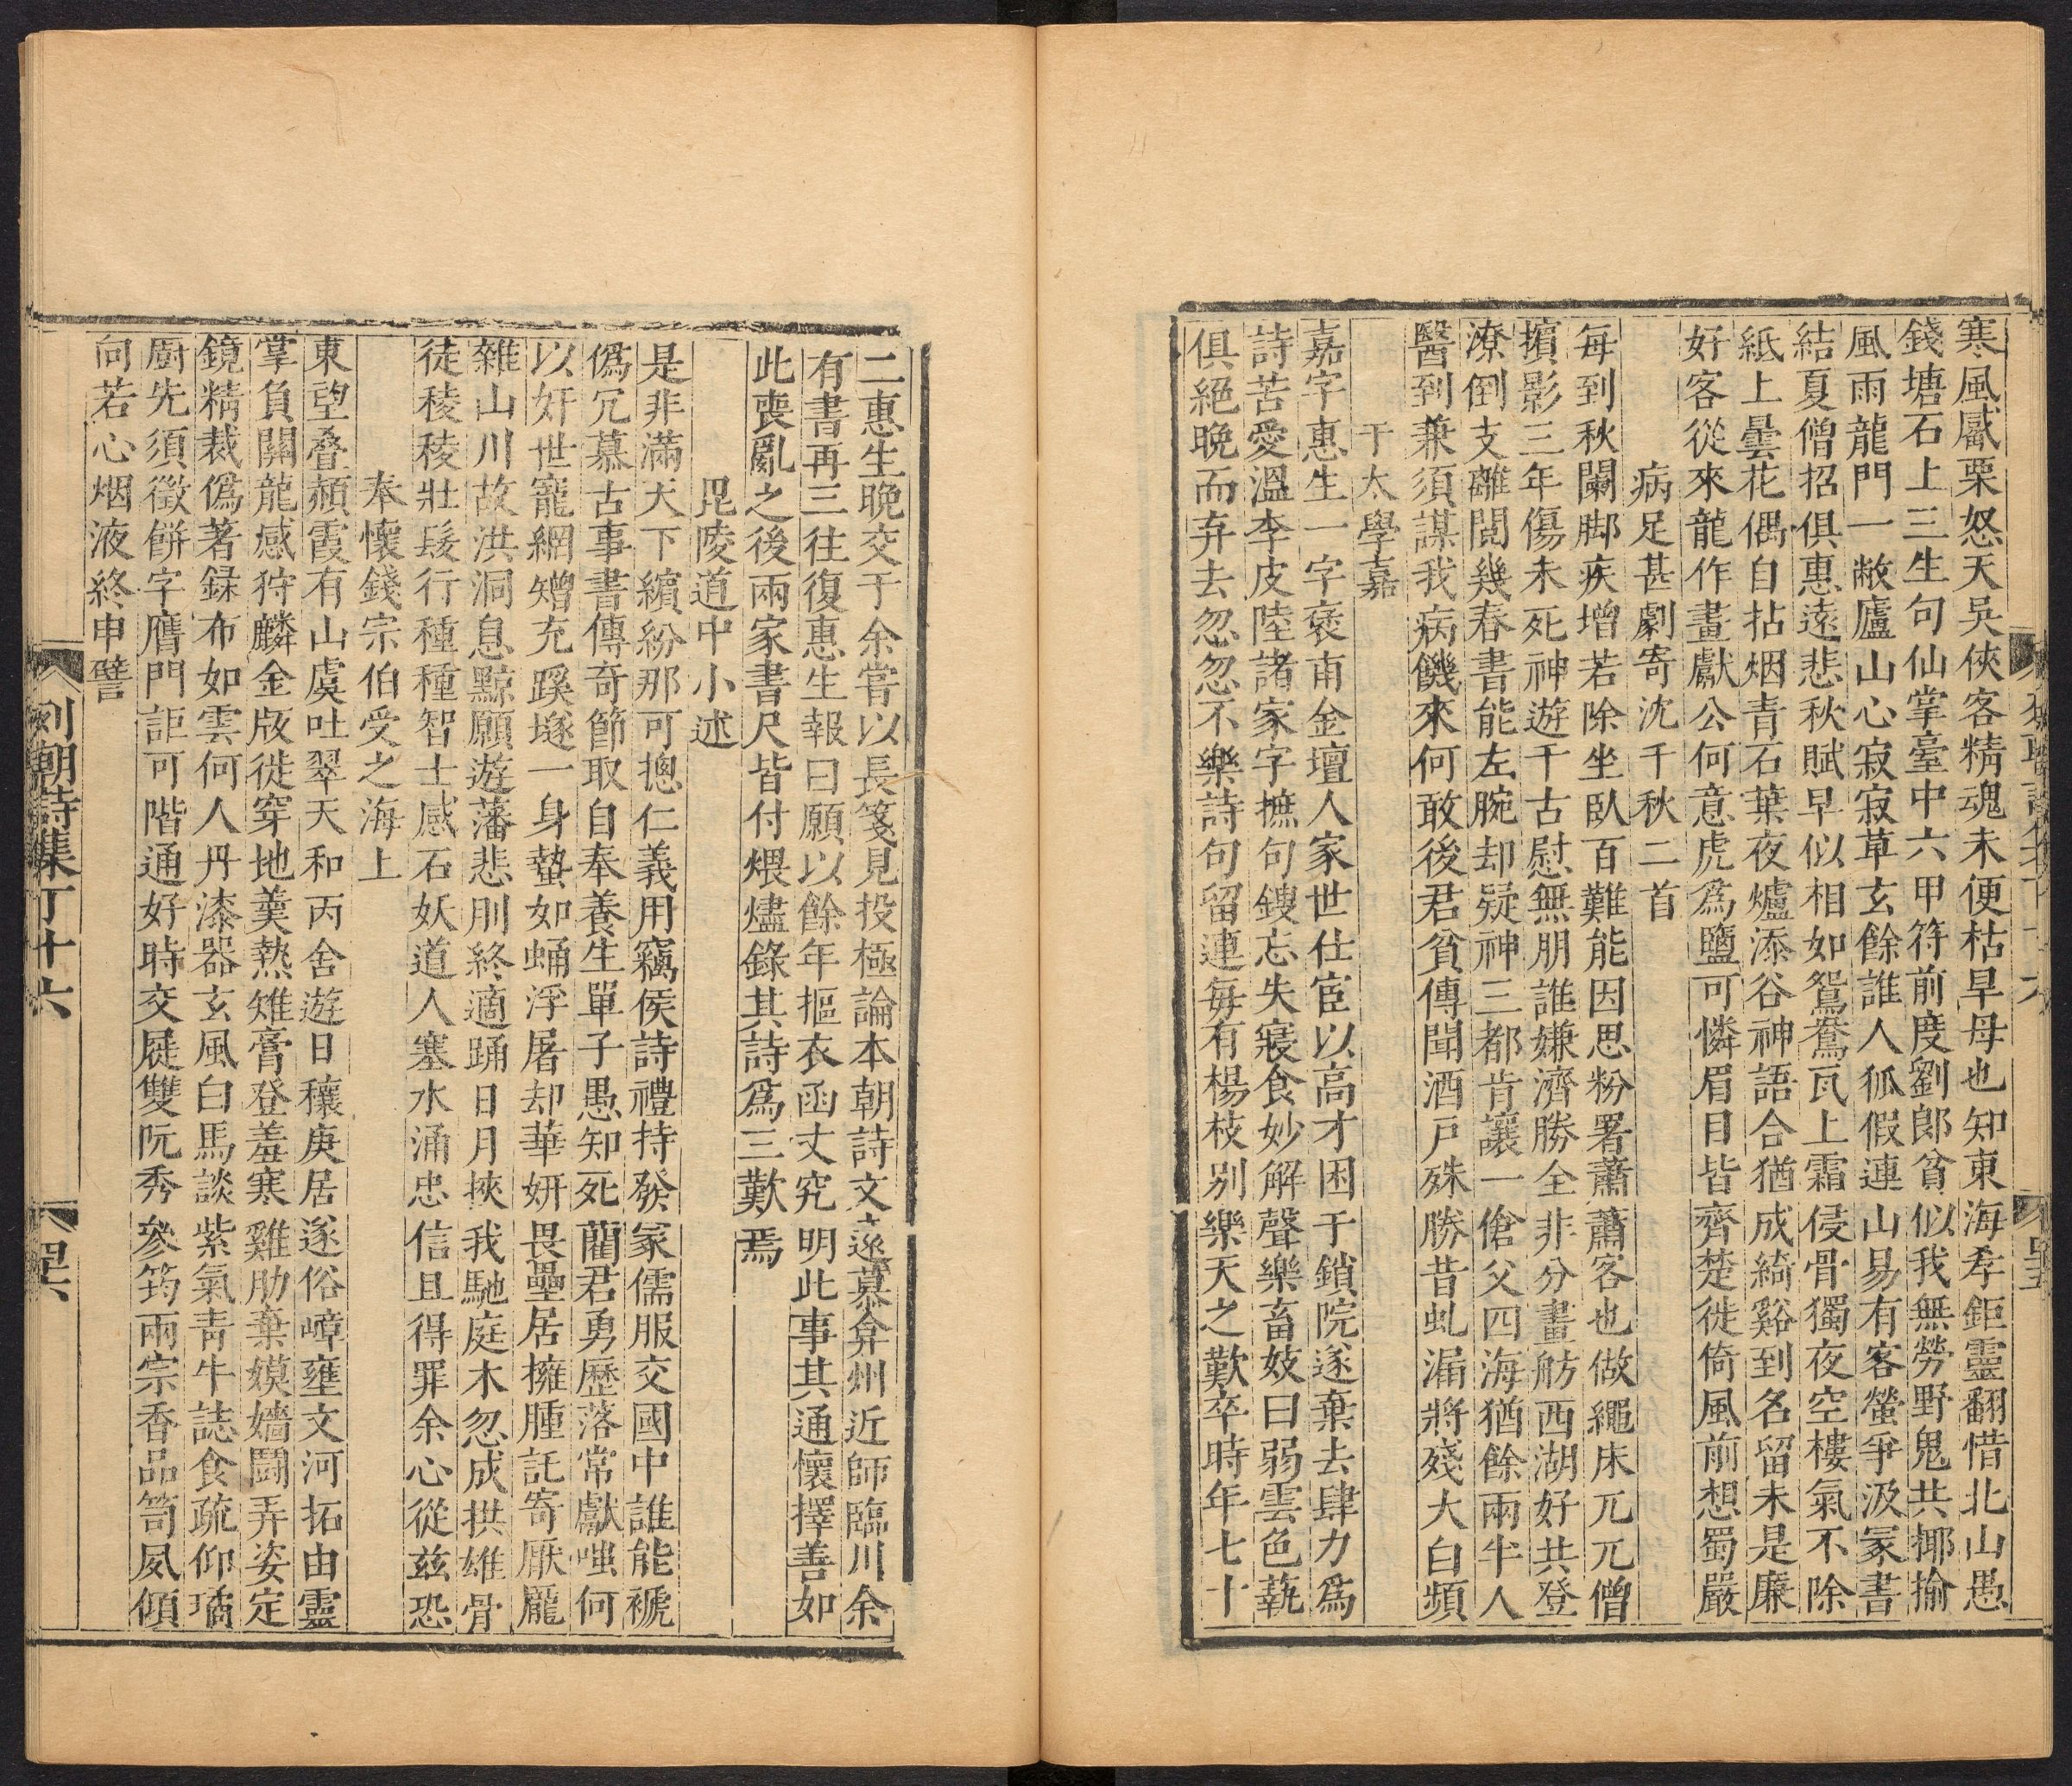 寒風颭栗怒天吳俠客精魂未便枯早母也知東海孝鉅靈翻惜北山愚
錢塘石上三生句仙掌臺中六甲符前度劉郎貧似我無勞野鬼共揶揄
風雨龍門一敝廬山心寂寂草玄餘誰人狐假連山易有客螢爭汲冢書
結夏僧招俱惠遠悲秋賦早似相如鴛鴦瓦上霜侵骨獨夜空樓氣不除
紙上曇花偶自拈烟青石葉夜爐添谷神語合猶成綺谿到名留未是廉
好客從來龍作畫獻公何意虎爲鹽可憐眉目皆齊楚徙倚風前想蜀嚴
病足甚劇寄沈千秋二首
每到秋闌脚疾增若除坐臥百難能因思粉署蕭蕭客也做繩床兀兀僧
擯影三年傷未死神遊千古慰無朋誰嫌濟勝全非分畫舫西湖好共登
潦倒支離閱幾春書能左腕却疑神三都肯讓一傖父四海猶餘兩半人
醫到兼須謀我病饑來何敢後君貧傳聞酒戸殊勝昔虬漏將殘大白頻
于太學嘉
嘉字惠生一字褒甫金壇人家世仕宦以高才困于鎖院遂棄去肆力爲
詩苦愛溫李皮陸諸家字摭句鎪忘失寢食妙解聲樂畜妓曰弱雲色蓺
俱絕晚而弃去忽忽不樂詩句留連每有楊枝别樂天之歎卒時年七十
二惠生晚交于余嘗以長箋見投極論本朝詩文遠慕弇州近師臨川余
有書再三往復惠生報曰願以餘年摳衣函丈究明此事其通懷擇善如
此喪亂之後兩家書尺皆付煨燼錄其詩爲三歎焉
毘陵道中小述
是非滿天下繽紛那可摠仁義用竊侯詩禮持發冢儒服交國中誰能褫
僞冗慕古事書傳奇節取自奉養生單子愚知死藺君勇歷落常獻嗤何
以奸世寵網矰充蹊壝一身蟄如蛹浮屠却華妍畏壘居擁腫託寄厭龐
雜山川故洪洞息黥願遊藩悲刖終適踊日月挾我馳庭木忽成拱雄骨
徒稜稜壯髮行種種智士感石妖道人塞水涌忠信且得罪余心從兹恐
奉懷錢宗伯受之海上
東望叠頳霞有山虞吐翠天和丙舍遊日穰庚居遂俗嶂壅文河拓由靈
掌負關龍感狩麟金版徙穿地羹熱雉膏登羞寒雞肋棄嫫嬙鬭弄姿定
鏡精裁僞著録布如雲何人丹漆器玄風白馬談紫氣靑牛誌食疏仰璚
廚先須徵餅字膺門詎可階通好時交屣雙阮秀叅筠兩宗香品笥夙傾
向若心烟液終申譬
列朝詩集丁十六